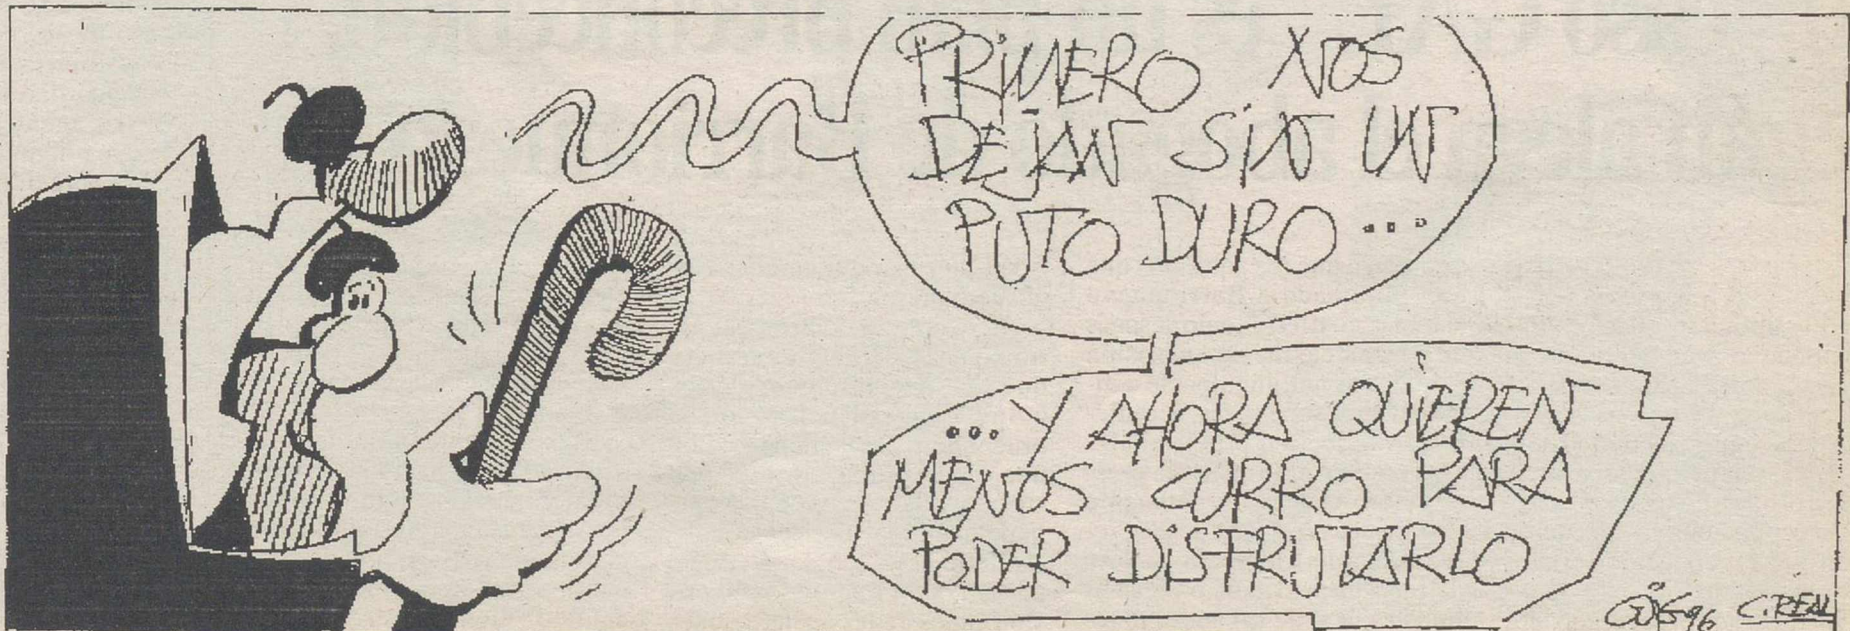 PRIMERO NOS
DEJAN SIN UN
PUTO DURO...
...Y AHORA QUIEREN
MENOS CURRO PARA
PODER DISFRUTARLO
96 C.REAL